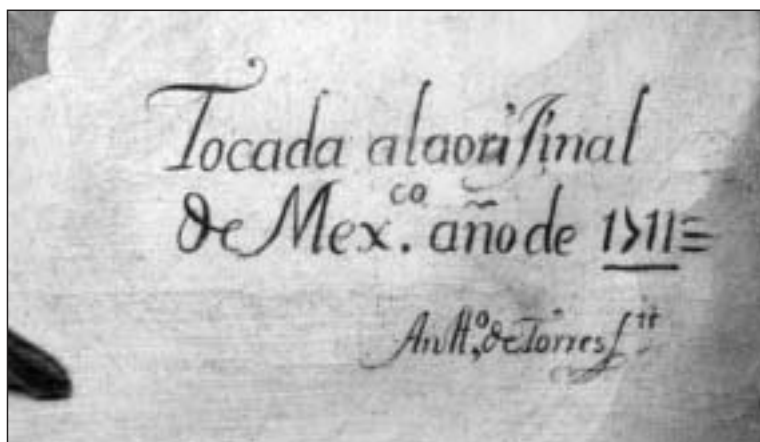 Tocada alaoriJinal
de Mex.co año de 1711=
Antt.o de Torres ftt